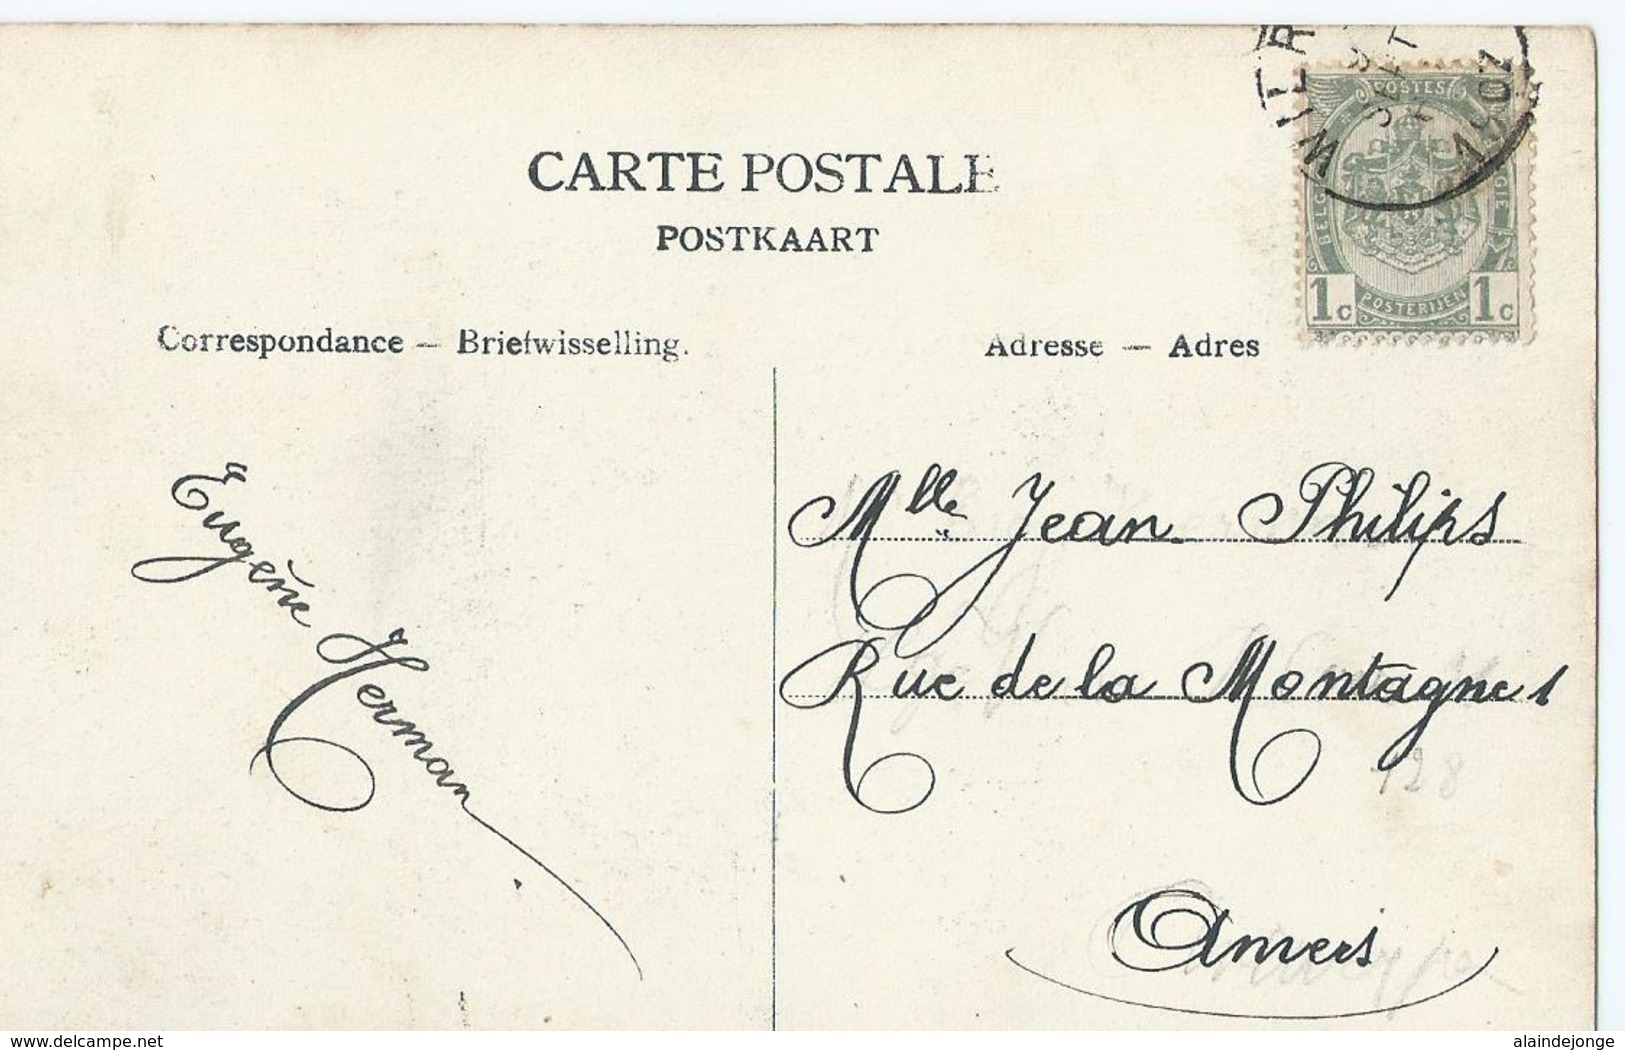 CARTE POSTALE
POSTKAART
Correspondance — Briefwisselling.
Adresse — Adres
POSTES
BELG
GIQUE
1c POSTERIJEN 1c
WILR
1907
Eugène Herman
Mlle Jean Philips
Rue de la Montagne 1
128
Anvers
delcampe.net
alaindejonge